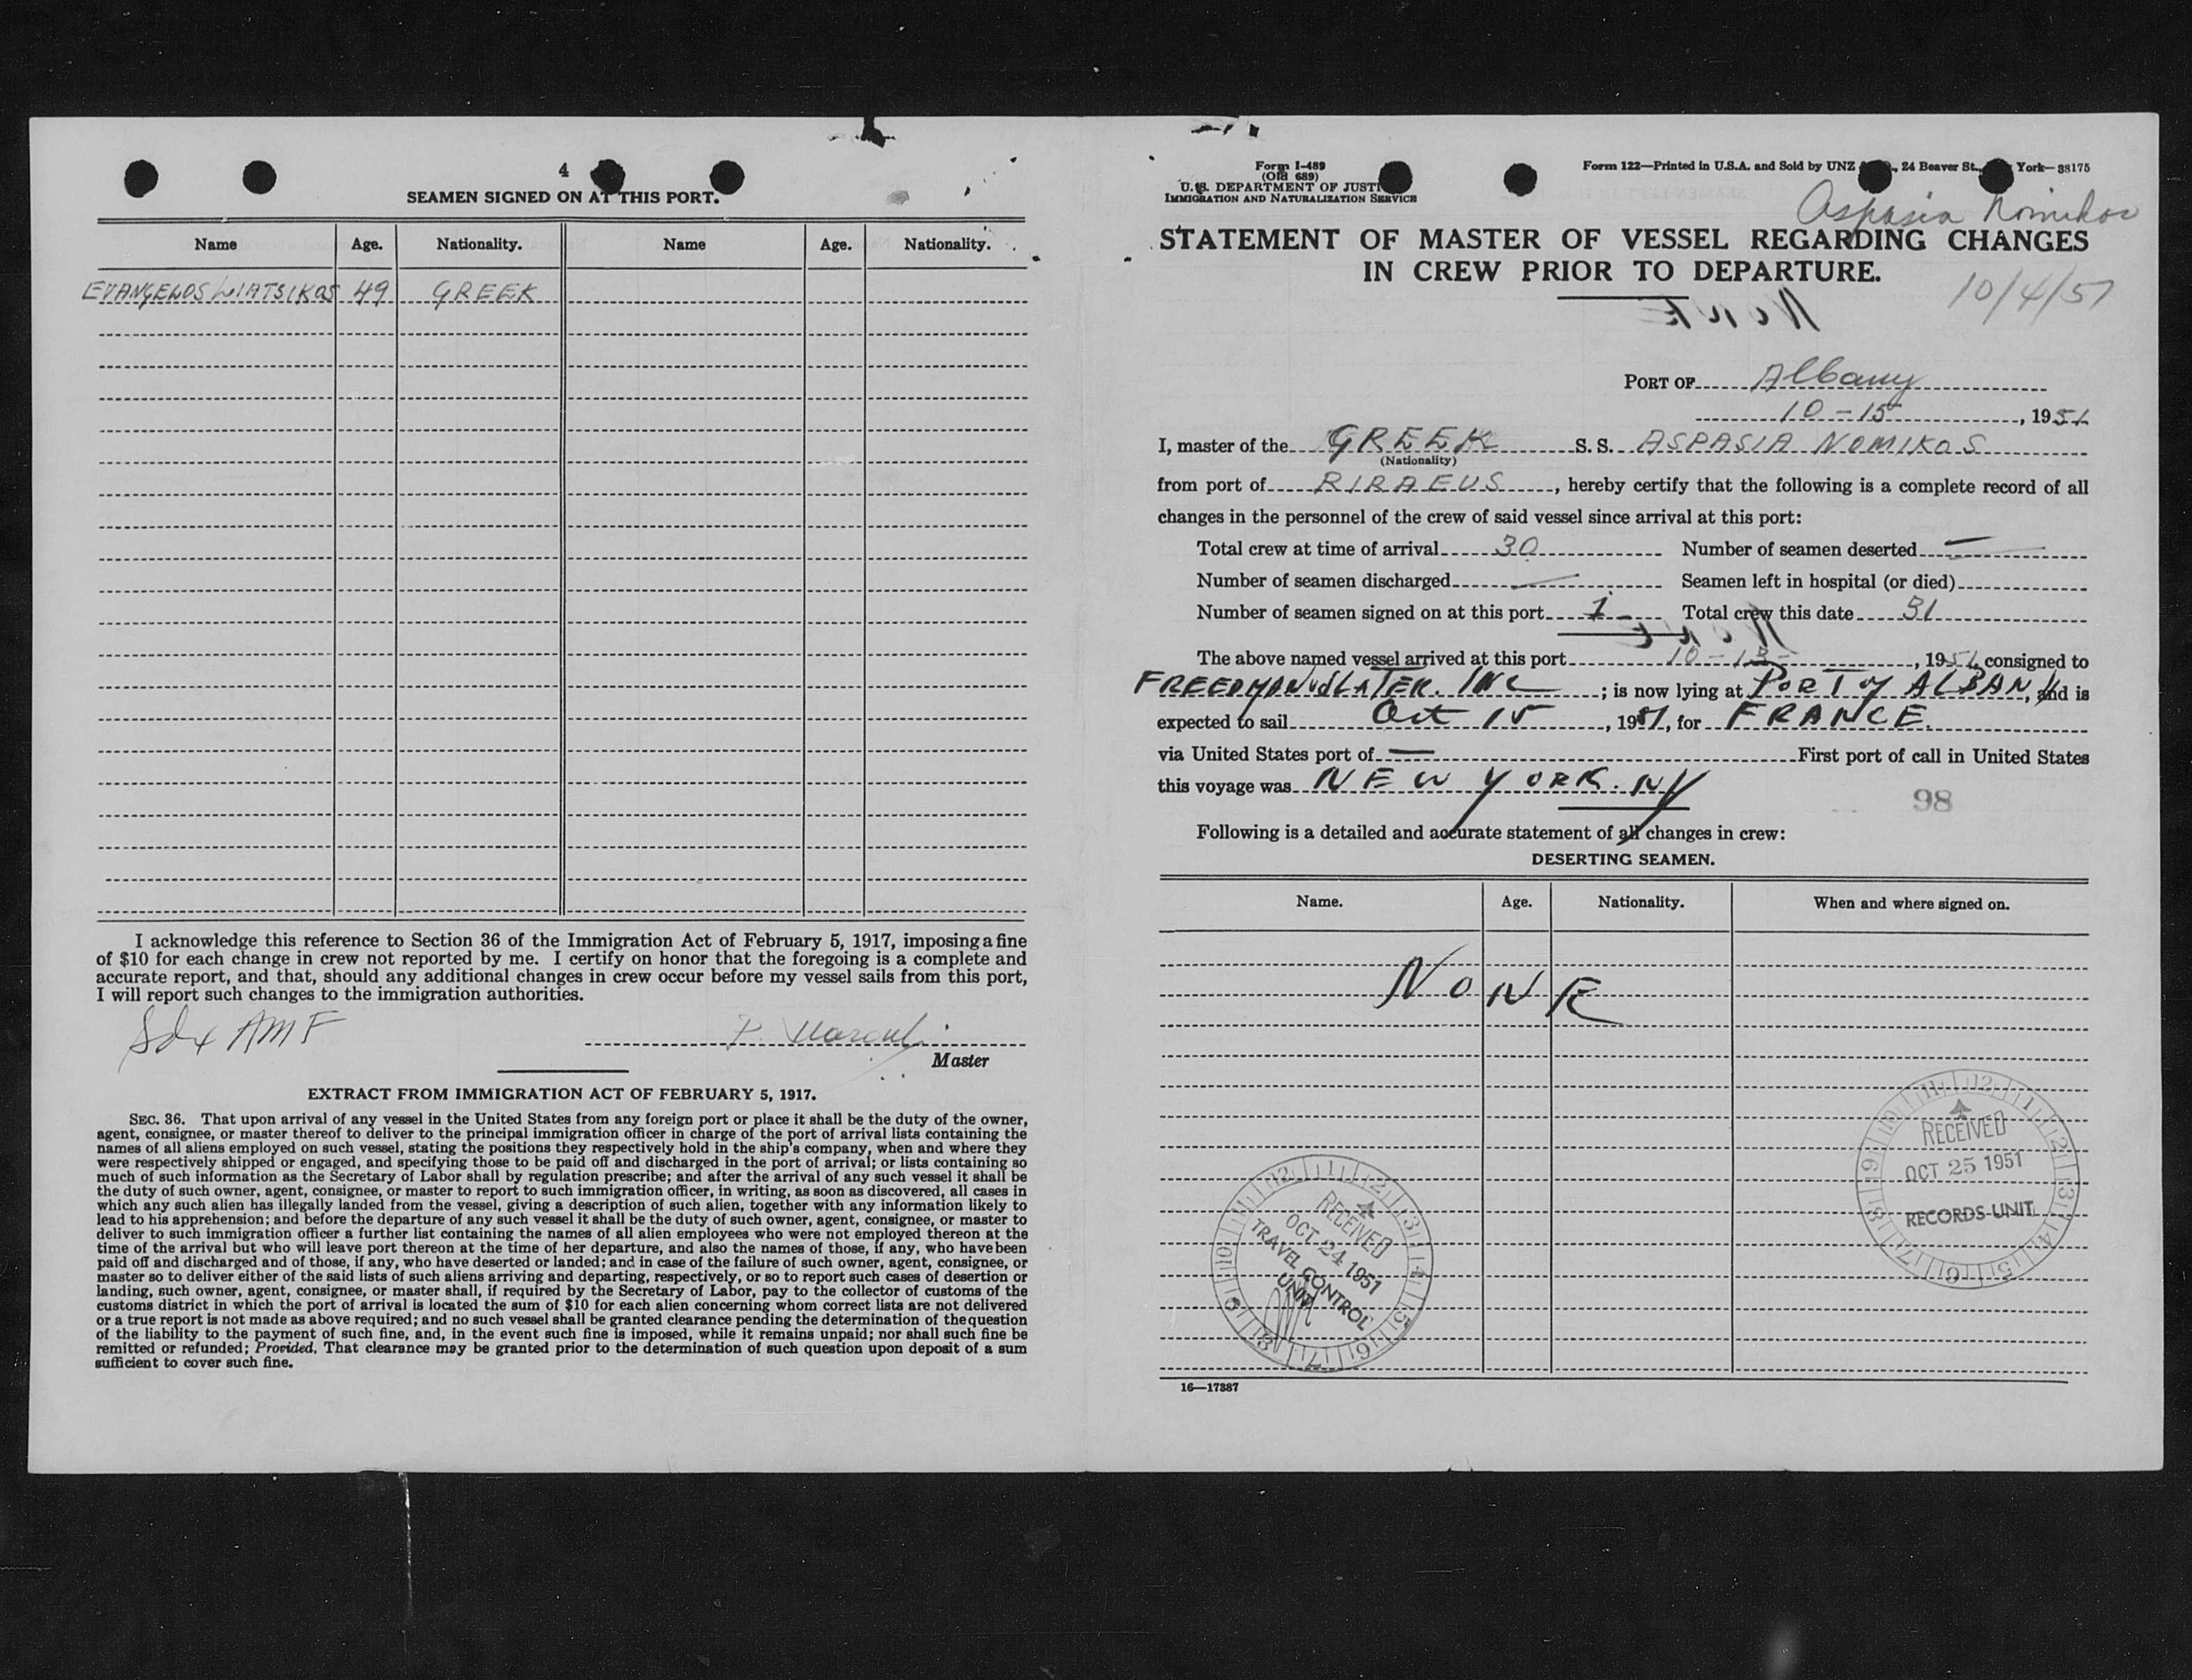 4
SEAMEN SIGNED ON AT THIS PORT.
Name Age. Nationality. Name Age. Nationality.
EVANGELOS LIATSIKOS 49 GREEK
I acknowledge this reference to Section 36 of the Immigration Act of February 5, 1917, imposing a fine
of $10 for each change in crew not reported by me. I certify on honor that the foregoing is a complete and
accurate report, and that, should any additional changes in crew occur before my vessel sails from this port,
I will report such changes to the immigration authorities.
AMF
Master
EXTRACT FROM IMMIGRATION ACT OF FEBRUARY 5, 1917.
SEC. 36. That upon arrival of any vessel in the United States from any foreign port or place it shall be the duty of the owner,
agent, consignee, or master thereof to deliver to the principal immigration officer in charge of the port of arrival lists containing the
names of all aliens employed on such vessel, stating the positions they respectively hold in the ship's company, when and where they
were respectively shipped or engaged, and specifying those to be paid off and discharged in the port of arrival; or lists containing so
much of such information as the Secretary of Labor shall by regulation prescribe; and after the arrival of any such vessel it shall be
the duty of such owner, agent, consignee, or master to report to such immigration officer, in writing, as soon as discovered, all cases in
which any such alien has illegally landed from the vessel, giving a description of such alien, together with any information likely to
lead to his apprehension; and before the departure of any such vessel it shall be the duty of such owner, agent, consignee, or master to
deliver to such immigration officer a further list containing the names of all alien employees who were not employed thereon at the
time of the arrival but who will leave port thereon at the time of her departure, and also the names of those, if any, who have been
paid off and discharged and of those, if any, who have deserted or landed; and in case of the failure of such owner, agent, consignee, or
master so to deliver either of the said lists of such aliens arriving and departing, respectively, or so to report such cases of desertion or
landing, such owner, agent, consignee, or master shall, if required by the Secretary of Labor, pay to the collector of customs of the
customs district in which the port of arrival is located the sum of $10 for each alien concerning whom correct lists are not delivered
or a true report is not made as above required; and no such vessel shall be granted clearance pending the determination of the question
of the liability to the payment of such fine, and, in the event such fine is imposed, while it remains unpaid; nor shall such fine be
remitted or refunded; Provided, That clearance may be granted prior to the determination of such question upon deposit of a sum
sufficient to cover such fine.
Form I-489
(Old 689)
U.S. DEPARTMENT OF JUSTI
IMMIGRATION AND NATURALIZATION SERVICE
Form 122—Printed in U.S.A. and Sold by UNZ , 24 Beaver St., York—38175
Aspasia Nomikos
STATEMENT OF MASTER OF VESSEL REGARDING CHANGES
IN CREW PRIOR TO DEPARTURE.
10/4/51
PORT OF Albany
10-15, 1951
I, master of the GREEK S. S. ASPASIA NOMIKOS
(Nationality)
from port of RIRAEUS, hereby certify that the following is a complete record of all
changes in the personnel of the crew of said vessel since arrival at this port:
Total crew at time of arrival 30 Number of seamen deserted —
Number of seamen discharged — Seamen left in hospital (or died)
Number of seamen signed on at this port 1 — Total crew this date 31
The above named vessel arrived at this port 10-13-, 1951, consigned to
FREEDMAN & SLATER. INC; is now lying at PORT of ALBANY, and is
expected to sail Oct 15, 1951, for FRANCE.
via United States port of — First port of call in United States
this voyage was NEW YORK. NY
98
Following is a detailed and accurate statement of all changes in crew:
DESERTING SEAMEN.
Name. Age. Nationality. When and where signed on.
NONE
RECEIVED
OCT 25 1951
RECORDS UNIT
RECEIVED
OCT 24 1951
TRAVEL CONTROL
UNIT
16—17387